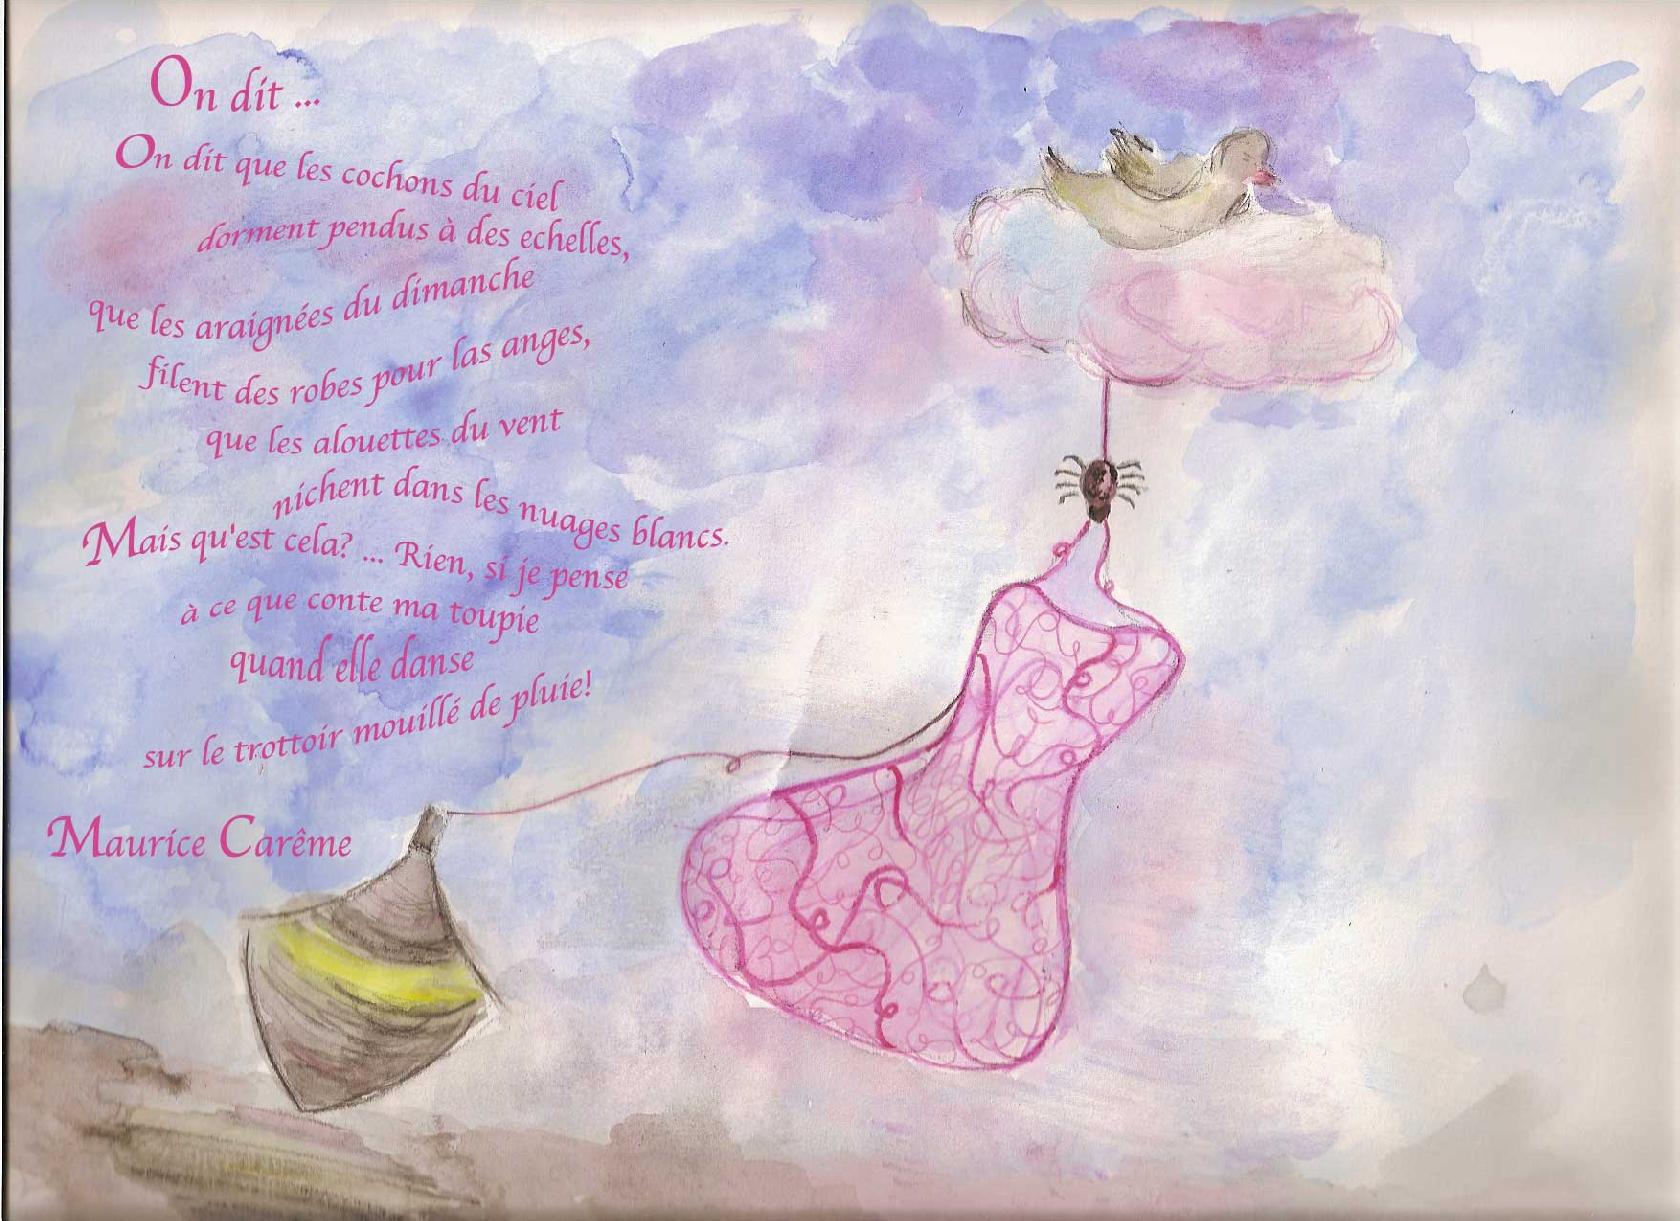 On dit ...
On dit que les cochons du ciel
dorment pendus à des echelles,
que les araignées du dimanche
filent des robes pour las anges,
que les alouettes du vent
nichent dans les nuages blancs.
Mais qu'est cela? ... Rien, si je pense
à ce que conte ma toupie
quand elle danse
sur le trottoir mouillé de pluie!
Maurice Carême